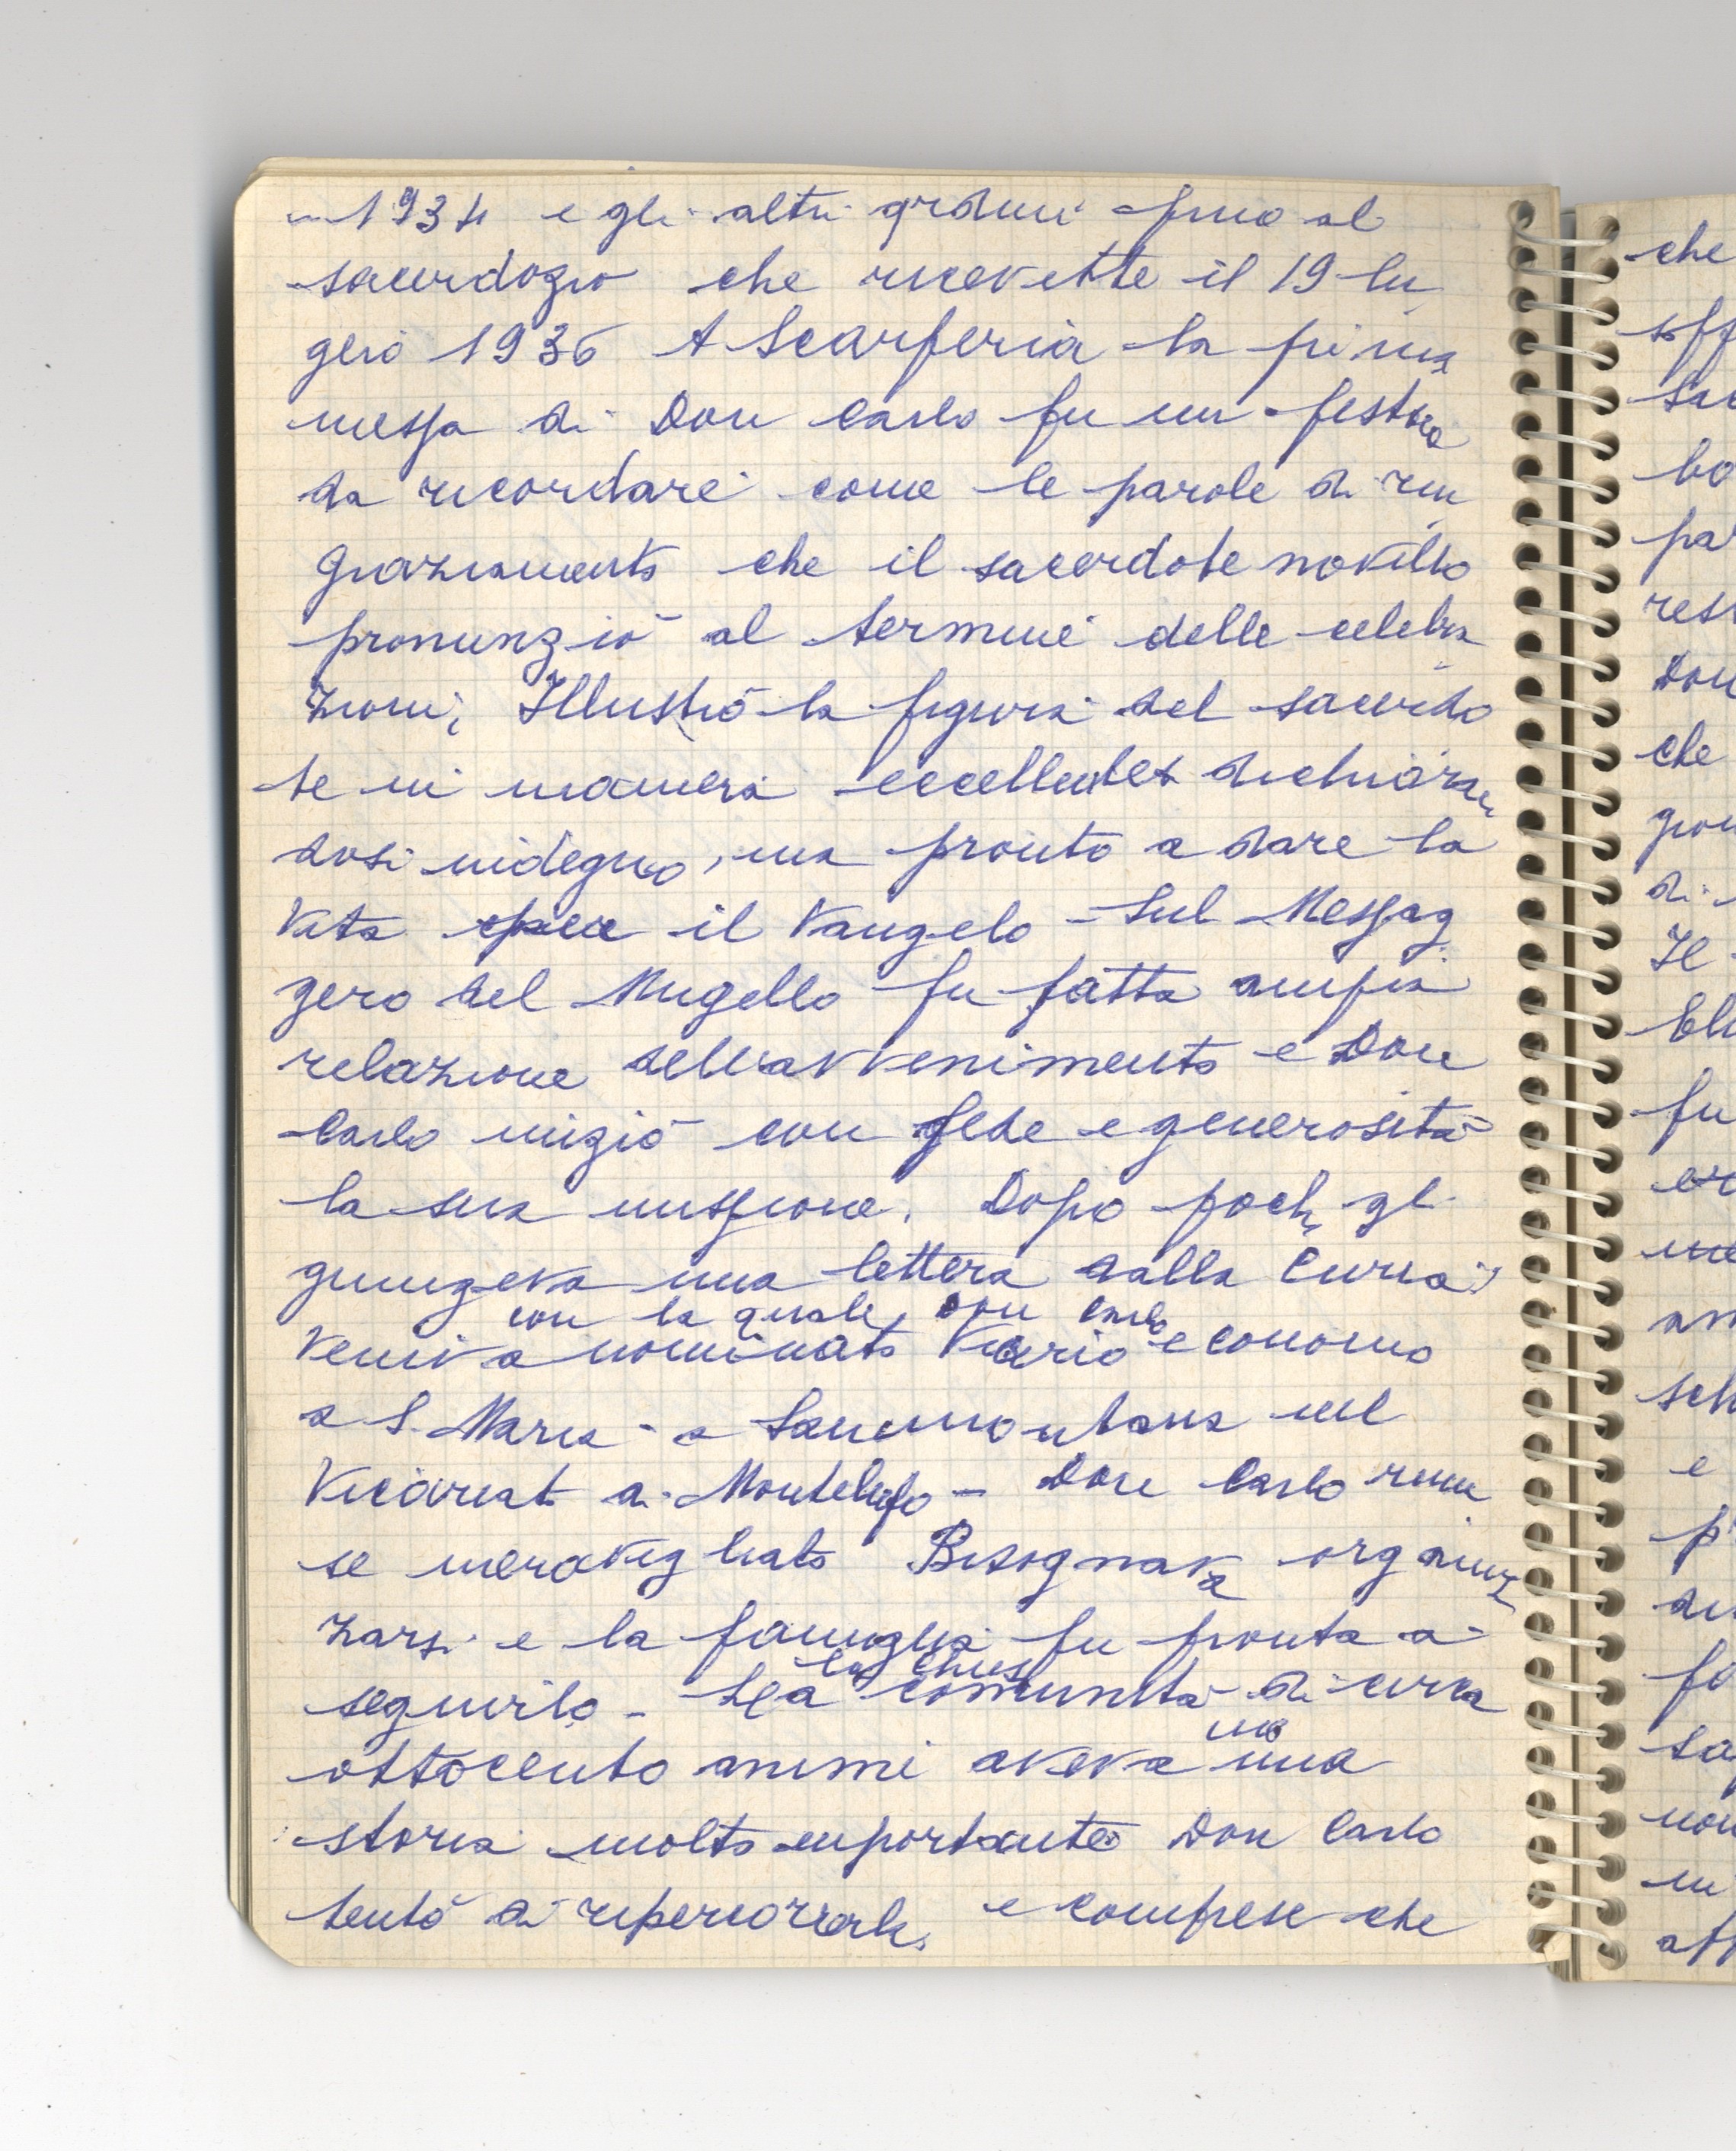 1934 e gli altri ordini fino al
sacerdozio che ricevette il 19 lu
glio 1936 A Scarperia la prima
messa di Don Carlo fu un festa
da ricordare come le parole di rin
graziamento che il sacerdote novello
pronunziò al termine delle celebra
zioni, Illustrò la figura del sacerdo
te in maniera eccellente dichiaran
dosi indegno, ma pronto a dare la
vita per il Vangelo - Sul Messag
gero del Mugello fu fatta ampia
relazione dell'avvenimento e Don
Carlo iniziò con fede e generosità
la sua missione. Dopo pochi gli
giungeva una lettera dalla Curia
con la quale Don Carlo
veniva nominato Vicario economo
a S. Maria a Sammontana nel
Vicariato di Montelupo - Don Carlo rima
se meravigliato Bisognava organiz
zarsi e la famiglia fu pronta a
seguirlo - La comunità di circa
la chies
ottocento anime aveva una
una
storia molto importante Don Carlo
tentò di ripercorrerla e comprese che
che
Don
che
di
Il
fu
e